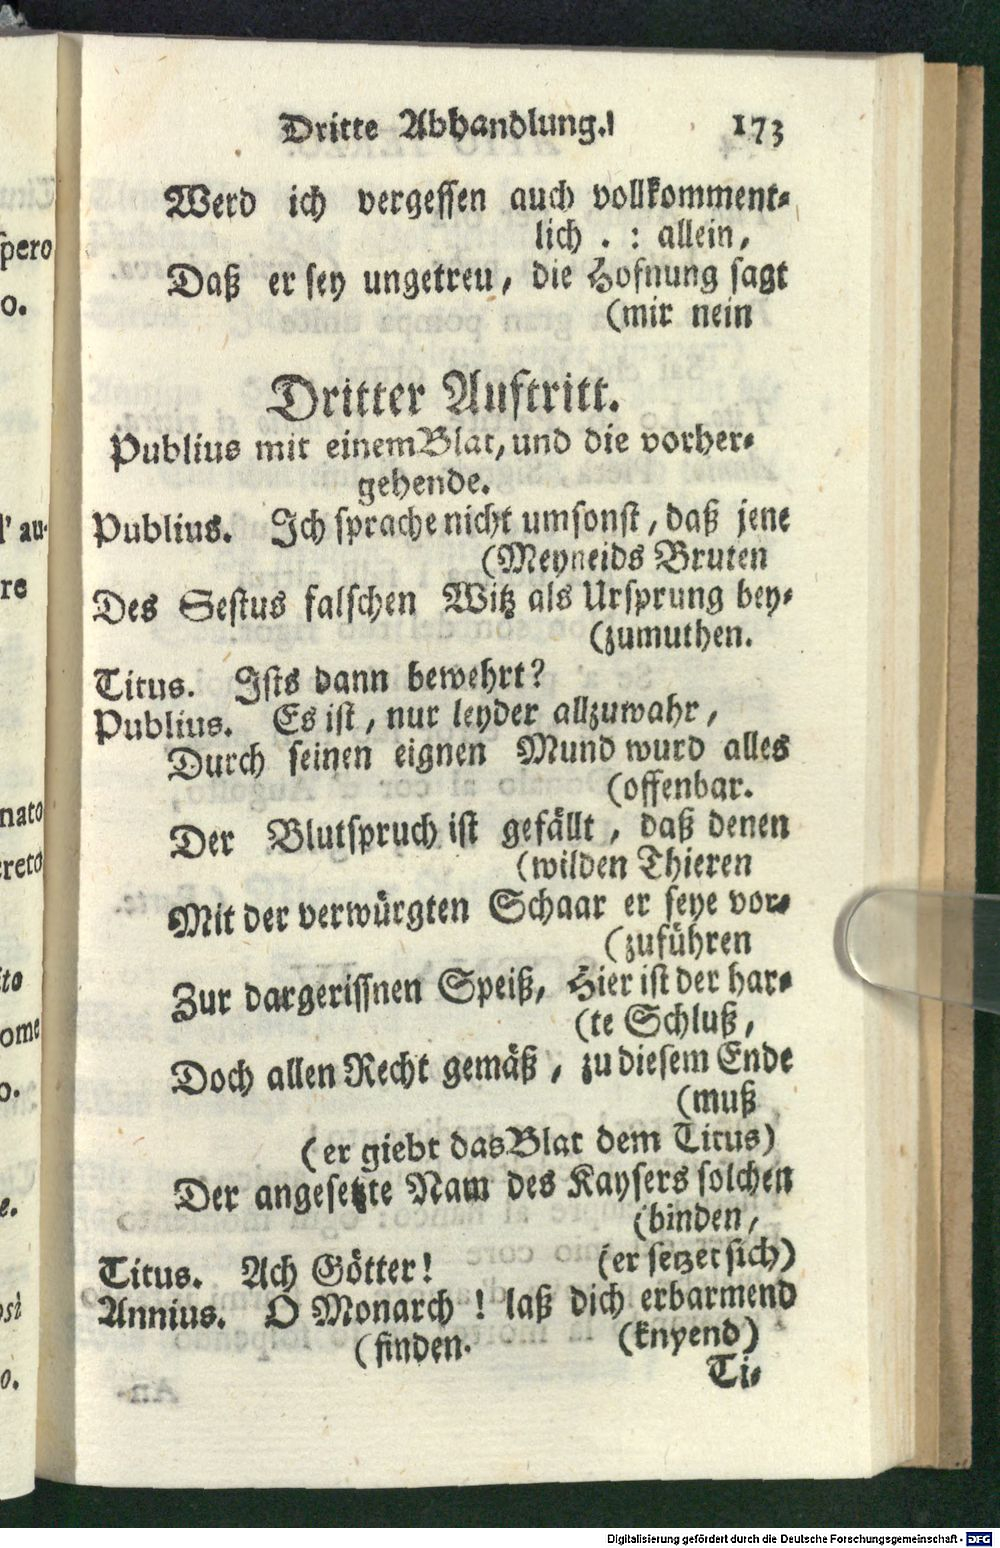 Dritte Abhandlung. 173
Werd ich vergessen auch vollkomment-
lich . : allein,
Daß er sey ungetreu, die Hofnung sagt
(mir nein
Dritter Auftritt.
Publius mit einem Blat, und die vorher-
gehende.
Publius. Ich sprache nicht umsonst, daß jene
(Meyneids Bruten
Des Sestus falschen Witz als Ursprung bey-
(zumuthen.
Titus. Ists dann bewehrt?
Publius. Es ist, nur leyder allzuwahr,
Durch seinen eignen Mund wurd alles
(offenbar.
Der Blutspruch ist gefällt, daß denen
(wilden Thieren
Mit der verwürgten Schaar er seye vor-
(zuführen
Zur dargerissnen Speiß, Hier ist der har-
(te Schluß,
Doch allen Recht gemäß, zu diesem Ende
(muß
(er giebt das Blat dem Titus)
Der angesetzte Nam des Kaysers solchen
(binden,
Titus. Ach Götter! (er setzet sich)
Annius. O Monarch ! laß dich erbarmend
(finden. (knyend)
Ti-
spero
o.
l' au-
re
nato
creto
ito
ome
o.
e.
osì
o.
Digitalisierung gefördert durch die Deutsche Forschungsgemeinschaft - DFG